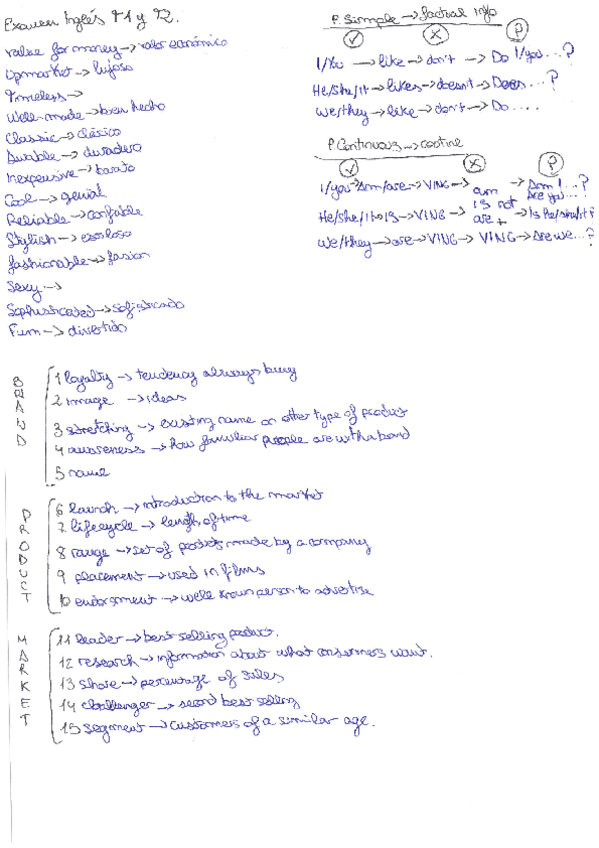 Examen Inglés T1 y T2.
value for money → valor económico
Upmarket → lujoso
Timeless →
Well-made → bien hecho
Classic → clásico
Durable → duradero
Inexpensive → barato
Cool → genial
Reliable → confiable
Stylish →
fashionable → fasion
Sexy →
Sophisticated → sofisticado
Fum → divertido
P. Simple → factual info
✓ ✗ ?
I/You → like → don't → Do I/you...?
He/She/It → likes → doesn't → Does...?
We/they → like → don't → Do....
P. Continuous →
✓ ✗ ?
I/you → Am/are → VING → am → Am I...?
Are you...?
He/she/it → IS → VING → is not → Is he/she/it?
are +
We/they → are → VING → VING → Are we...?
BRAND
1 loyalty → tendency always buy
2 image → ideas
3 stretching → existing name on other type of product
4 awareness → how familiar people are with a band
5 name
PRODUCT
6 launch → introduction to the market
7 lifecycle → length of time
8 range → set of products made by a company
9 placement → used in films
10 endorsment → well known person to advertise
MARKET
11 leader → best selling product.
12 research → information about what consumers want.
13 share → percentage of sales
14 challenger → second best selling
15 segment → customers of a similar age.